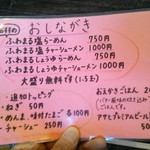 おしながき
ふわまる塩らーめん 750円
ふわまる塩チャーシューメン 1000円
ふわまるしょうゆらーめん 750円
ふわまるしょうゆチャーシューメン 1000円
大盛り無料です(1.5玉)
・追加トッピング
・ねぎ 50円
・めんま、味付たまご 各100円
・チャーシュー 250円
おかかごはん
アサヒプレミアムビール